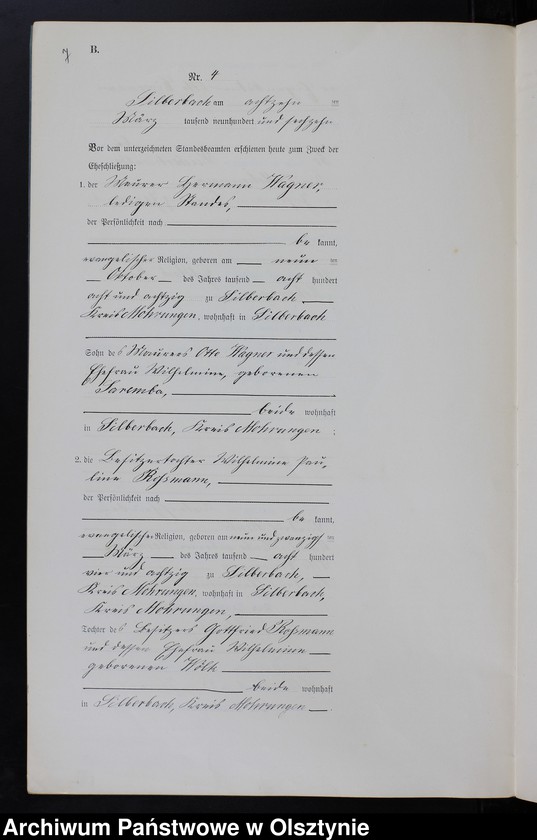 7 B.
Nr. 4
Silberbach am achtzehn ten
März tausend neunhundert und sechzehn
Vor dem unterzeichneten Standesbeamten erschienen heute zum Zweck der
Eheschließung:
1. der Maurer Hermann Wagner,
ledigen Standes,
der Persönlichkeit nach
be kannt,
evangelischer Religion, geboren am neun ten
Oktober des Jahres tausend acht hundert
acht und achtzig zu Silberbach
Kreis Mohrungen, wohnhaft in Silberbach
Sohn des Maurers Otto Wagner und dessen
Ehefrau Wilhelmine, geborenen
Saremba,
beide wohnhaft
in Silberbach, Kreis Mohrungen ;
2. die Besitzertochter Wilhelmine Pau-
line Roßmann,
der Persönlichkeit nach
be kannt,
evangelischer Religion, geboren am neun und zwanzigs ten
März des Jahres tausend acht hundert
vier und achtzig zu Silberbach,
Kreis Mohrungen, wohnhaft in Silberbach,
Kreis Mohrungen,
Tochter des Besitzers Gottfried Roßmann
und dessen Ehefrau Wilhelmine
geborenen Wölk
beide wohnhaft
in Silberbach, Kreis Mohrungen
Archiwum Państwowe w Olsztynie